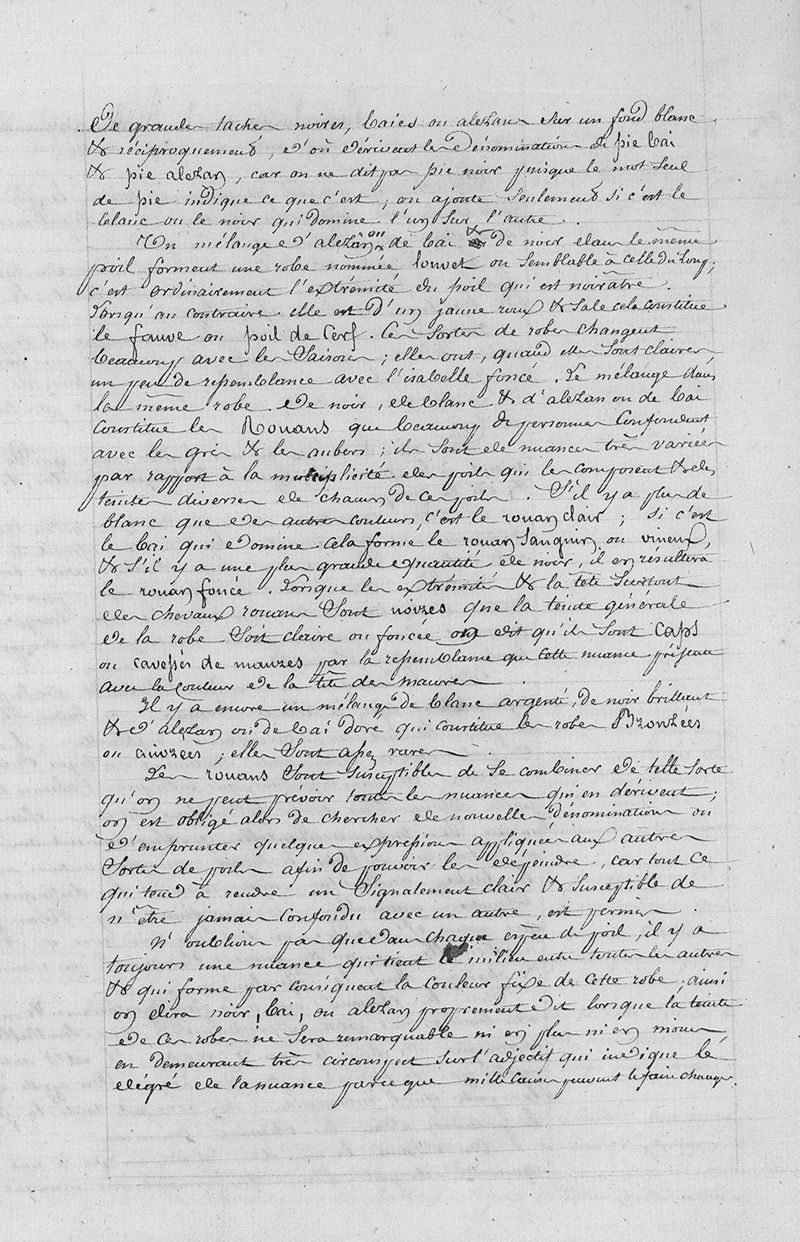 De grandes taches noires, baies ou alezan sur un fond blanc
& réciproquement, d'où dérivent les dénominations de pie bai
& pie alezan, car on ne dit pas pie noir puisque le mot seul
de pie indique ce que c'est, on ajoute seulement si c'est le
blanc ou le noir qui domine l'un sur l'autre.
Un mélange d'alezan ou de bai & de noir dans le même
poil forment une robe nommée louvet ou semblable à celle du loup;
c'est ordinairement l'extrémité du poil qui est noirâtre.
Lorsqu'au contraire elle est d'un jaune roux & sale cela constitue
le fauve ou poil de cerf. Ces sortes de robes changent
beaucoup avec les saisons; elles ont, quand elles sont claires
un peu de ressemblance avec l'isabelle foncé. Le mélange dans
la même robe de noir, de blanc & d'alezan ou de bai
constitue les Rouans que beaucoup de personnes confondent
avec les gris & les aubers; ils sont de nuances très variées
par rapport à la multiplicité des poils qui les composent & des
teintes diverses de chacun de ces poils. S'il y a plus de
blanc que des autres couleurs, c'est le rouan clair; si c'est
le bai qui domine cela forme le rouan sanguin ou vineux,
& s'il y a une plus grande quantité de noir, il en résultera
le rouan foncé. Lorsque les extrémités & la tete surtout
des chevaux rouans sont noires que la teinte générale
de la robe soit claire ou foncée on dit qu'ils sont caps
ou cavesses de maures par la ressemblance que cette nuance présente
avec la couleur de la tête des maures.
Il y a encore un mélange de blanc argenté, de noir brillant
& d'alezan ou de bai doré qui constitue les robes Bronzées
ou cuivrées; elles sont assez rares.
Les rouans sont susceptibles de se combiner de telle sorte
qu'on ne peut prévoir toutes les nuances qui en dérivent;
on est obligé alors de chercher de nouvelles dénominations ou
d'emprunter quelques expressions appliquées aux autres
sortes de poils afin de pouvoir les dépeindre, car tout ce
qui tend à rendre un signalement clair & susceptible de
n'être jamais confondu avec un autre, est permis.
N'oublions pas que dans chaque espèce de poil, il y a
toujours une nuance qui tient le milieu entre toutes les autres
& qui forme par conséquent la couleur fixe de cette robe; ainsi
on dira noir, bai, ou alezan proprement dit lorsque la teinte
de ces robes ne sera remarquable ni en plus ni en moins
en demeurant très circonspect sur l'adjectif qui indique le
dégré de la nuance parce que mille causes peuvent le faire changer.